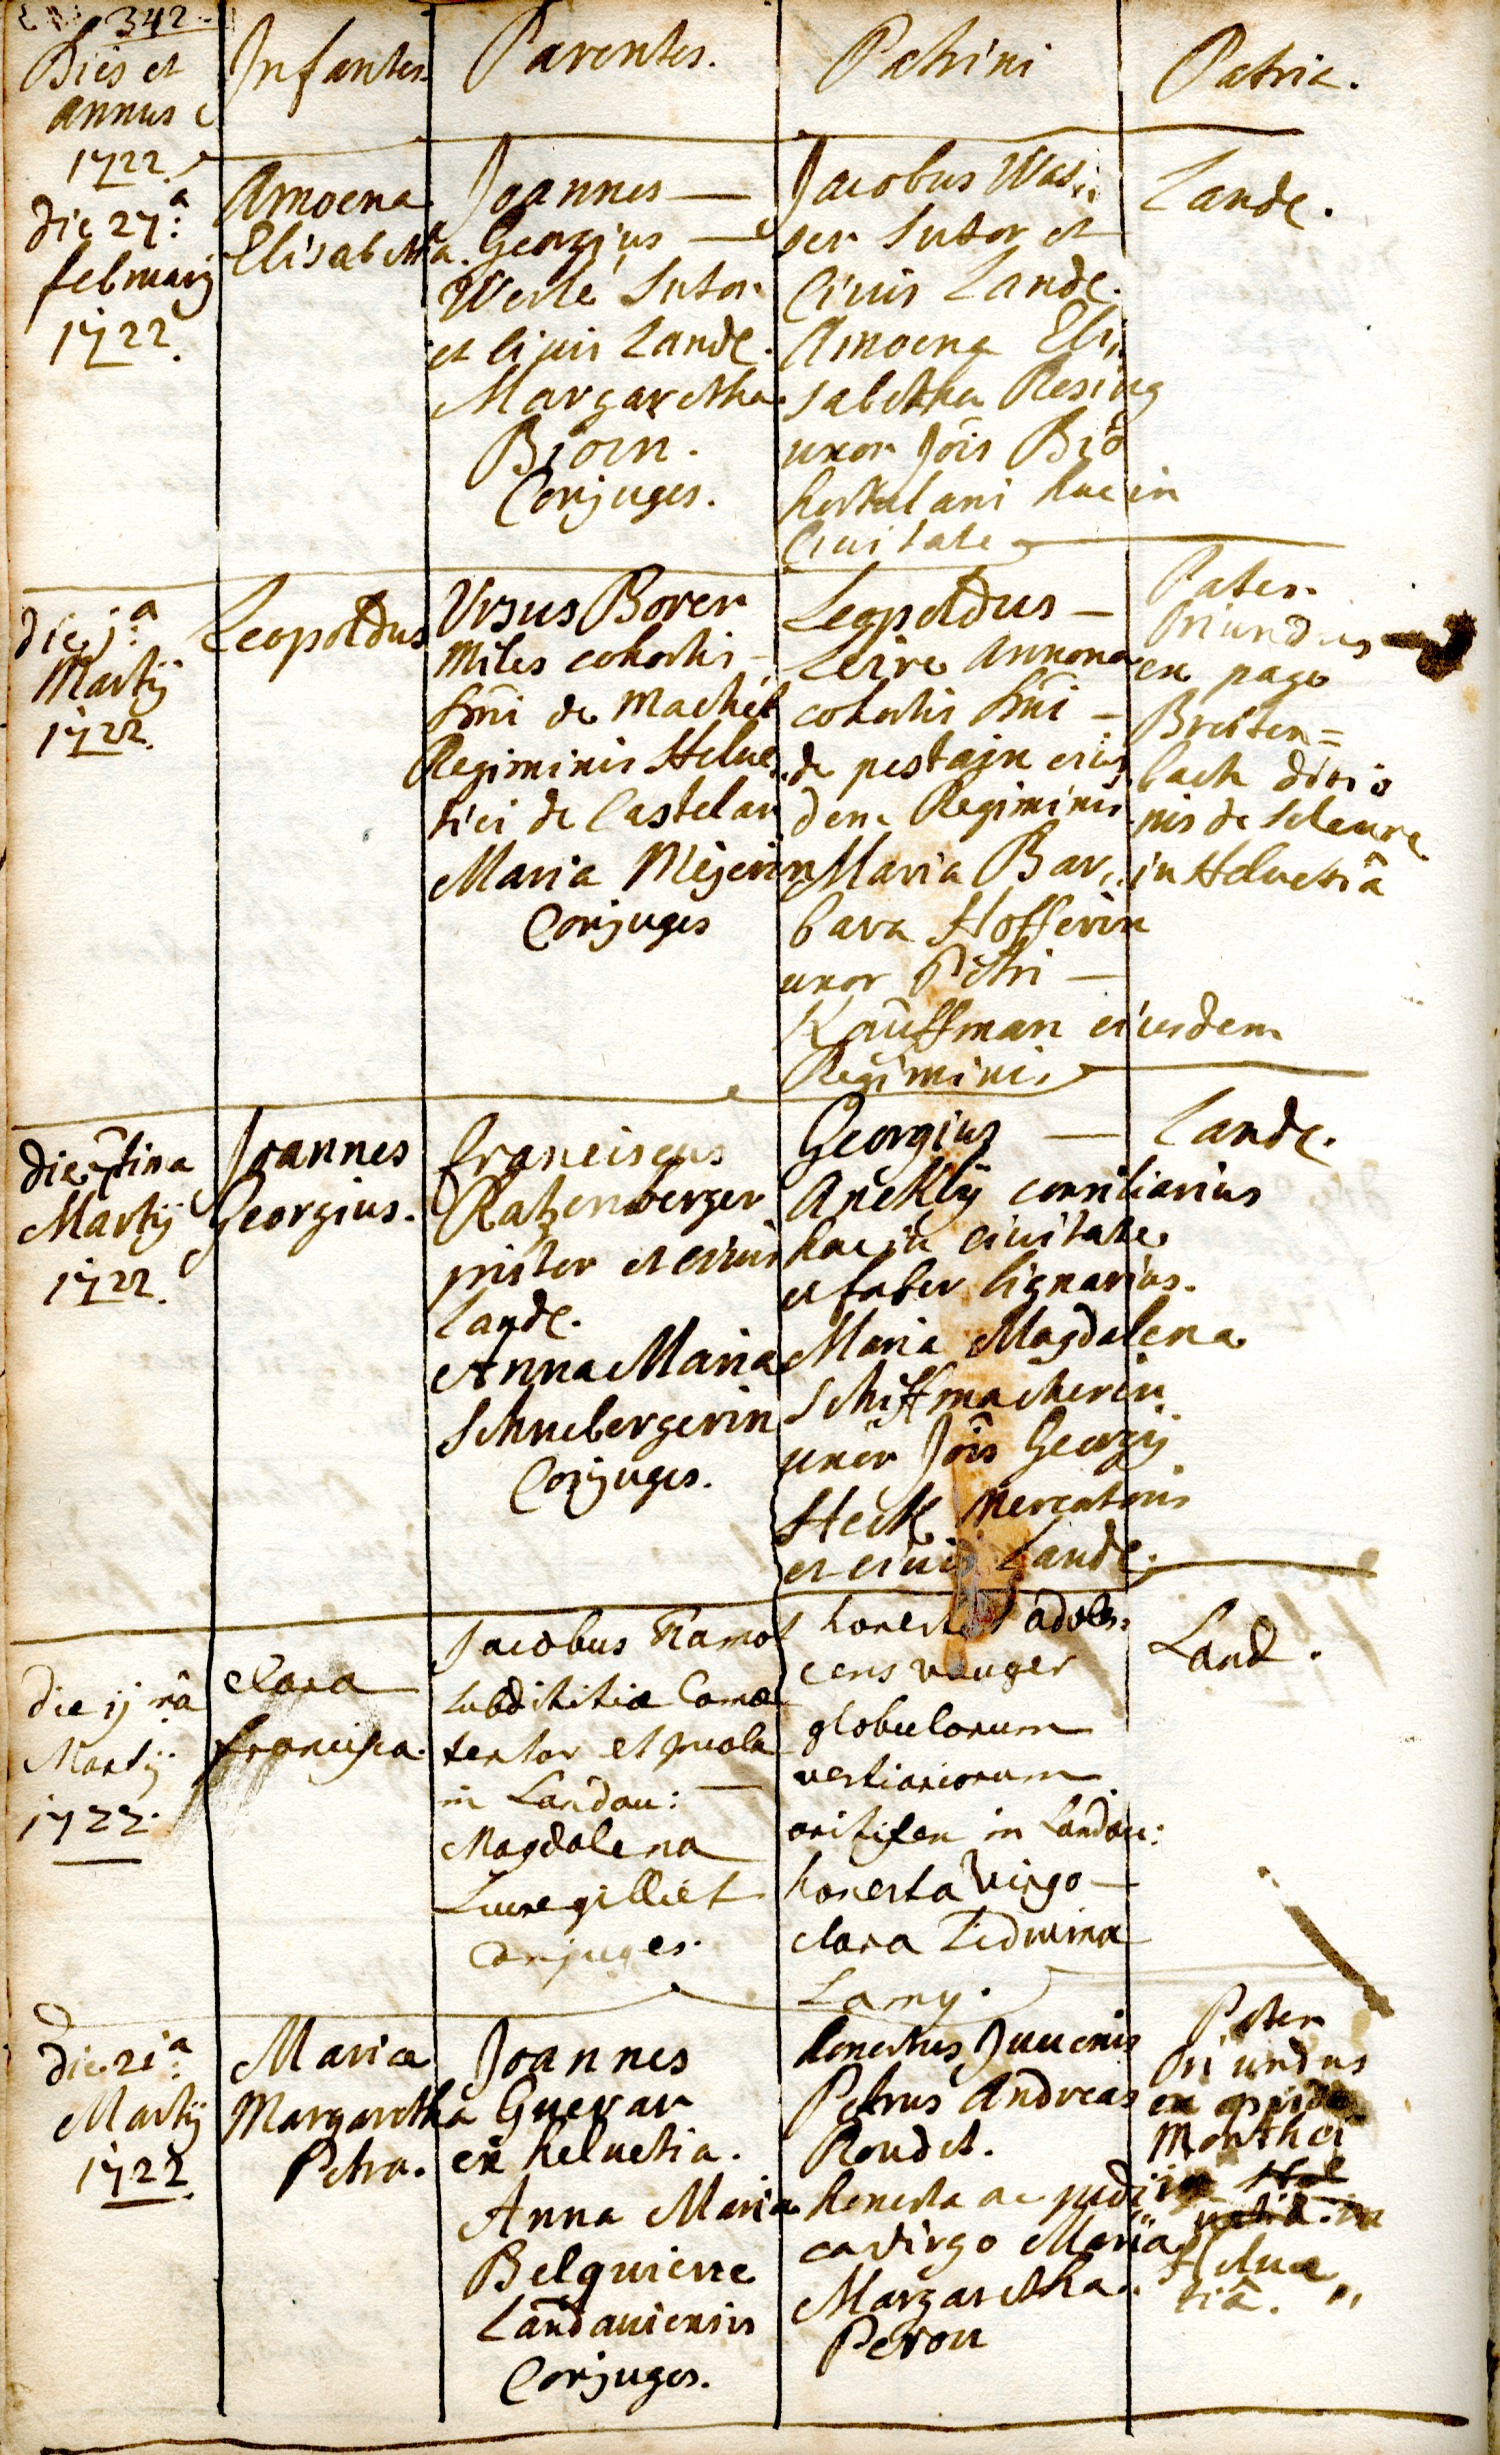 342.
Dies et
annus
1722.
Infantes
Parentes.
Patrini
Patria.
die 27.a
februarij
1722.
Amoena
Elisabetha.
Joannes —
Georgius —
Werlé Sutor
et civis Landę.
Margaretha
Bioin.
Conjuges.
Jacobus Was„
ser Sutor et
Civis Landę.
Amoena Eli„
sabetha Resing
uxor Jois Bio
hortulani hac in
Civitate
Landę.
die 1.a
Martij
1722.
Leopoldus
Ursus Borer
Miles cohortis —
Dni de Machet
Regiminis Helve„
tici de Castelar
Maria Meÿerin
Conjuges
Leopoldus —
Leire Annona
cohortis Dni —
de pestajn eius
dem Regiminis
Maria Bar„
bara Hofferin
uxor Petri —
Kauffman eiusdem
Regiminis
Pater
Oriundus
ex pago
Breiten=
bach ditio
nis de Soleure
in Helvetiâ
Martij
1722.
Joannes
Georgius.
Franciscus
Katzenberger
pistor et civis
Landę.
Anna Maria
Schnebergerin
Conjuges.
Georgius —
Anethlÿ consiliarius
hac in civitate
et faber lignarius.
Maria Magdalena
Schiffmacherin
uxor Jois Georgij
Heck Mercatoris
et civis Landę.
Landę.
die 11 mâ
Martij
1722.
Clara
Francisca.
Jacobus Ramot
subdititiæ Comæ
textor et incola
in Landau: —
Magdalena
Conjuges.
honestus adoles„
cens vauger
globulorum
vestiariorum
artifex in Landau:
honesta Virgo —
Clara Lidwina
Lamy.
Land.
die 21.a
Martij
1722.
Maria
Margaretha
Petra.
Joannes
Guerar
ex helvetia.
Anna Maria
Belquierre
Landaviensis
Conjuges.
honestus Juvenis
Petrus Andreas
Roudet.
honesta ac pudi
ca virgo Maria
Margaretha
Perou
Pater
Oriundus
ex oppido
Monthei
in Hel
vetia. in
Helve
tiâ. „